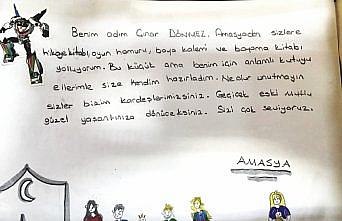 Benim adım Çınar DÖNMEZ. Amasyadan sizlere
hikaye kitabı, oyun hamuru, boya kalemi ve boyama kitabı
yolluyorum. Bu küçük ama benim için anlamlı kutuyu
ellerimle size kendim hazırladım. Ne olur unutmayın
sizler bizim kardeşlerimizsiniz. Geçicek eski mutlu
güzel yaşantınıza döneceksiniz. Sizi çok seviyoruz.
AMASYA